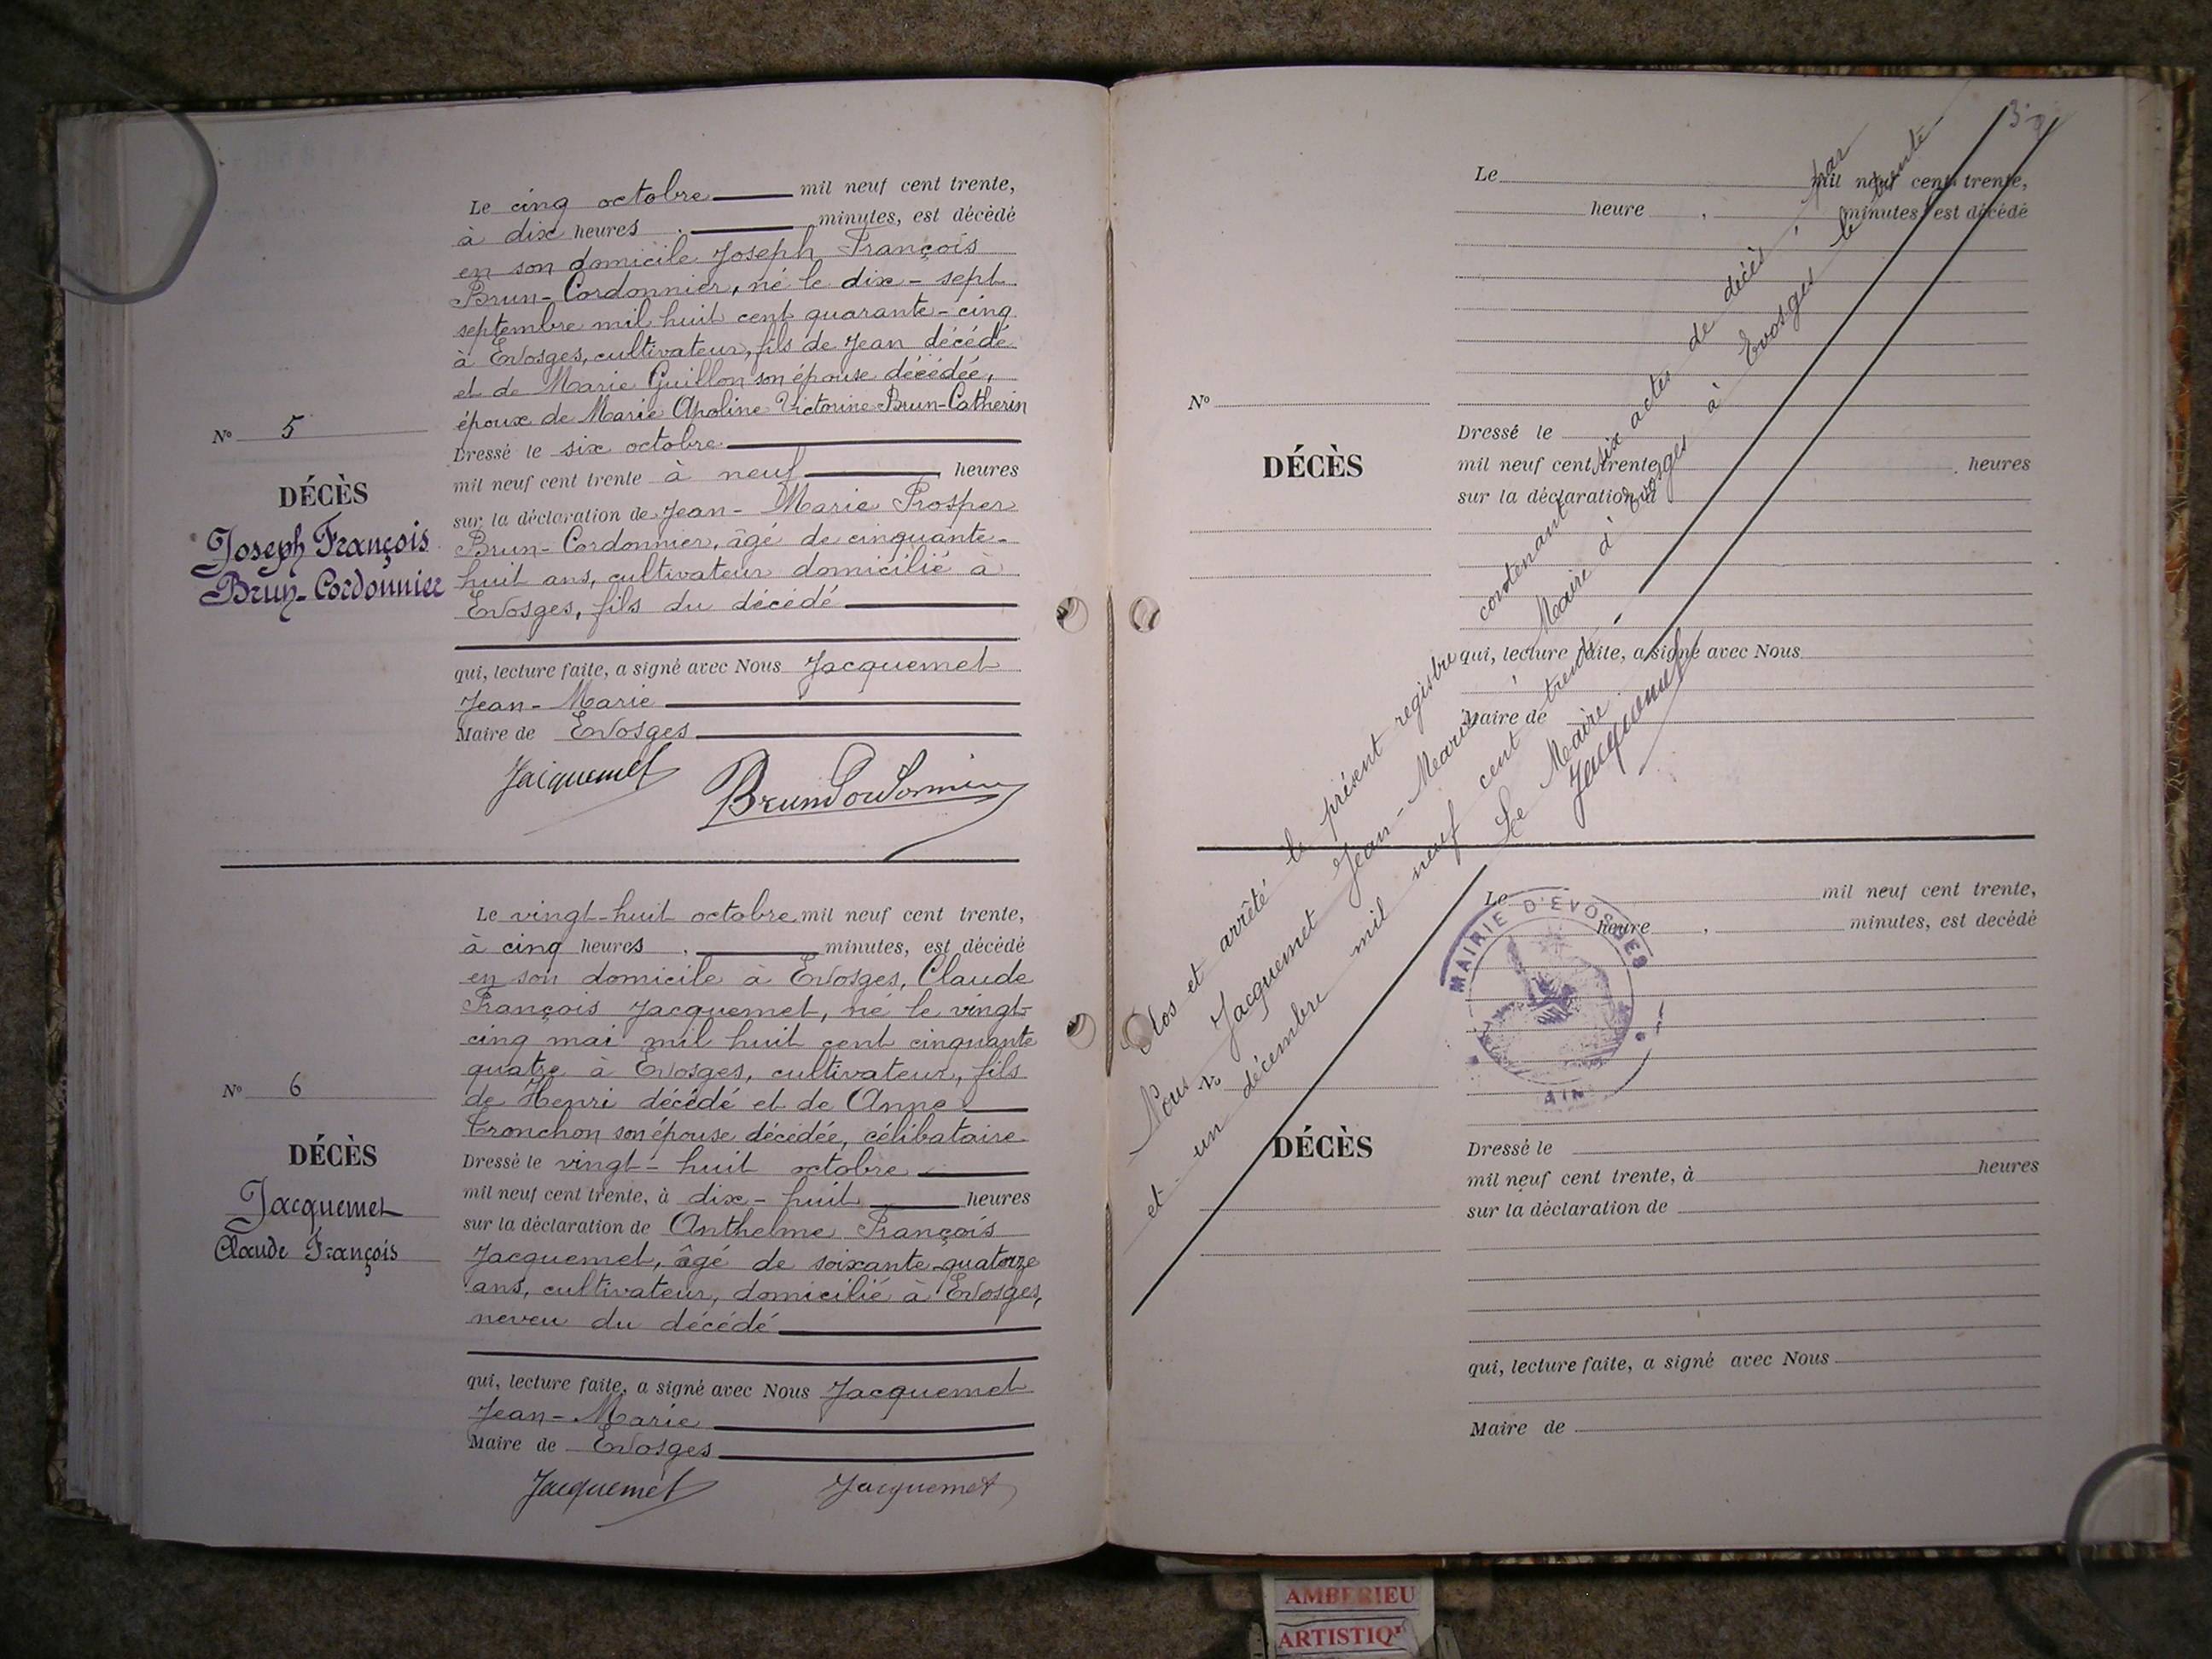 Le cinq octobre mil neuf cent trente,
à dix heures , minutes, est décédé
en son domicile Joseph François
Brun-Cordonnier, né le dix-sept
septembre mil huit cent quarante-cinq
à Evosges, cultivateur, fils de Jean décédé
et de Marie Guillon son épouse décédée,
époux de Marie Apoline Victorine Brun-Catherin
Dressé le six octobre
mil neuf cent trente à neuf heures
sur la déclaration de Jean-Marie Prosper
Brun-Cordonnier, âgé de cinquante-
huit ans, cultivateur domicilié à
Evosges, fils du décédé
qui, lecture faite, a signé avec Nous Jacquemet
Jean-Marie
Maire de Evosges
Jacquemet BrunCordonnier
N° 5
DÉCÈS
Joseph François
Brun-Cordonnier
Le vingt-huit octobre mil neuf cent trente,
à cinq heures , minutes, est décédé
en son domicile à Evosges, Claude
François Jacquemet, né le vingt-
cinq mai mil huit cent cinquante
quatre à Evosges, cultivateur, fils
de Henri décédé et de Anne
Tronchon son épouse décédée, célibataire
Dressé le vingt-huit octobre
mil neuf cent trente, à dix-huit heures
sur la déclaration de Anthelme François
Jacquemet, âgé de soixante-quatorze
ans, cultivateur, domicilié à Evosges,
neveu du décédé
qui, lecture faite, a signé avec Nous Jacquemet
Jean-Marie
Maire de Evosges
Jacquemet Jacquemet
N° 6
DÉCÈS
Jacquemet
Claude François
Le mil neuf cent trente,
heure , minutes, est décédé
N°
DÉCÈS
Dressé le
mil neuf cent trente, heures
sur la déclaration d
qui, lecture faite, a signé avec Nous
Maire de
Clos et arrêté le présent registre contenant six actes de décès, par
Nous, Jacquemet Jean-Marie, Maire d'Evosges à Evosges le trente
et-un décembre mil neuf cent trente.
Le Maire
Jacquemet
MAIRIE D'EVOSGES
AIN
Le mil neuf cent trente,
heure , minutes, est decédé
N°
DÉCÈS
Dressé le
mil neuf cent trente, à heures
sur la déclaration de
qui, lecture faite, a signé avec Nous
Maire de
AMBERIEU
ARTISTIQ